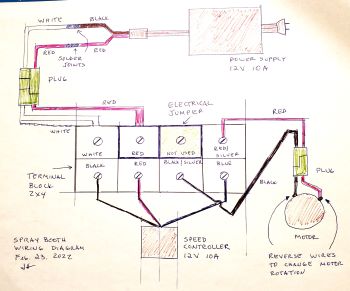 WHITE
BLACK
RED
RED
SOLDER
JOINTS
POWER SUPPLY
12V 10A
PLUG
RED
ELECTRICAL
JUMPER
RED
WHITE
WHITE
RED
NOT USED
RED/
SILVER
BLACK
RED
BLACK/SILVER
BLUE
TERMINAL
BLOCK
2X4
BLACK
PLUG
MOTOR
SPRAY BOOTH
WIRING DIAGRAM
FEB 23, 2022
SPEED
CONTROLLER
12V 10A
REVERSE WIRES
TO CHANGE MOTOR
ROTATION